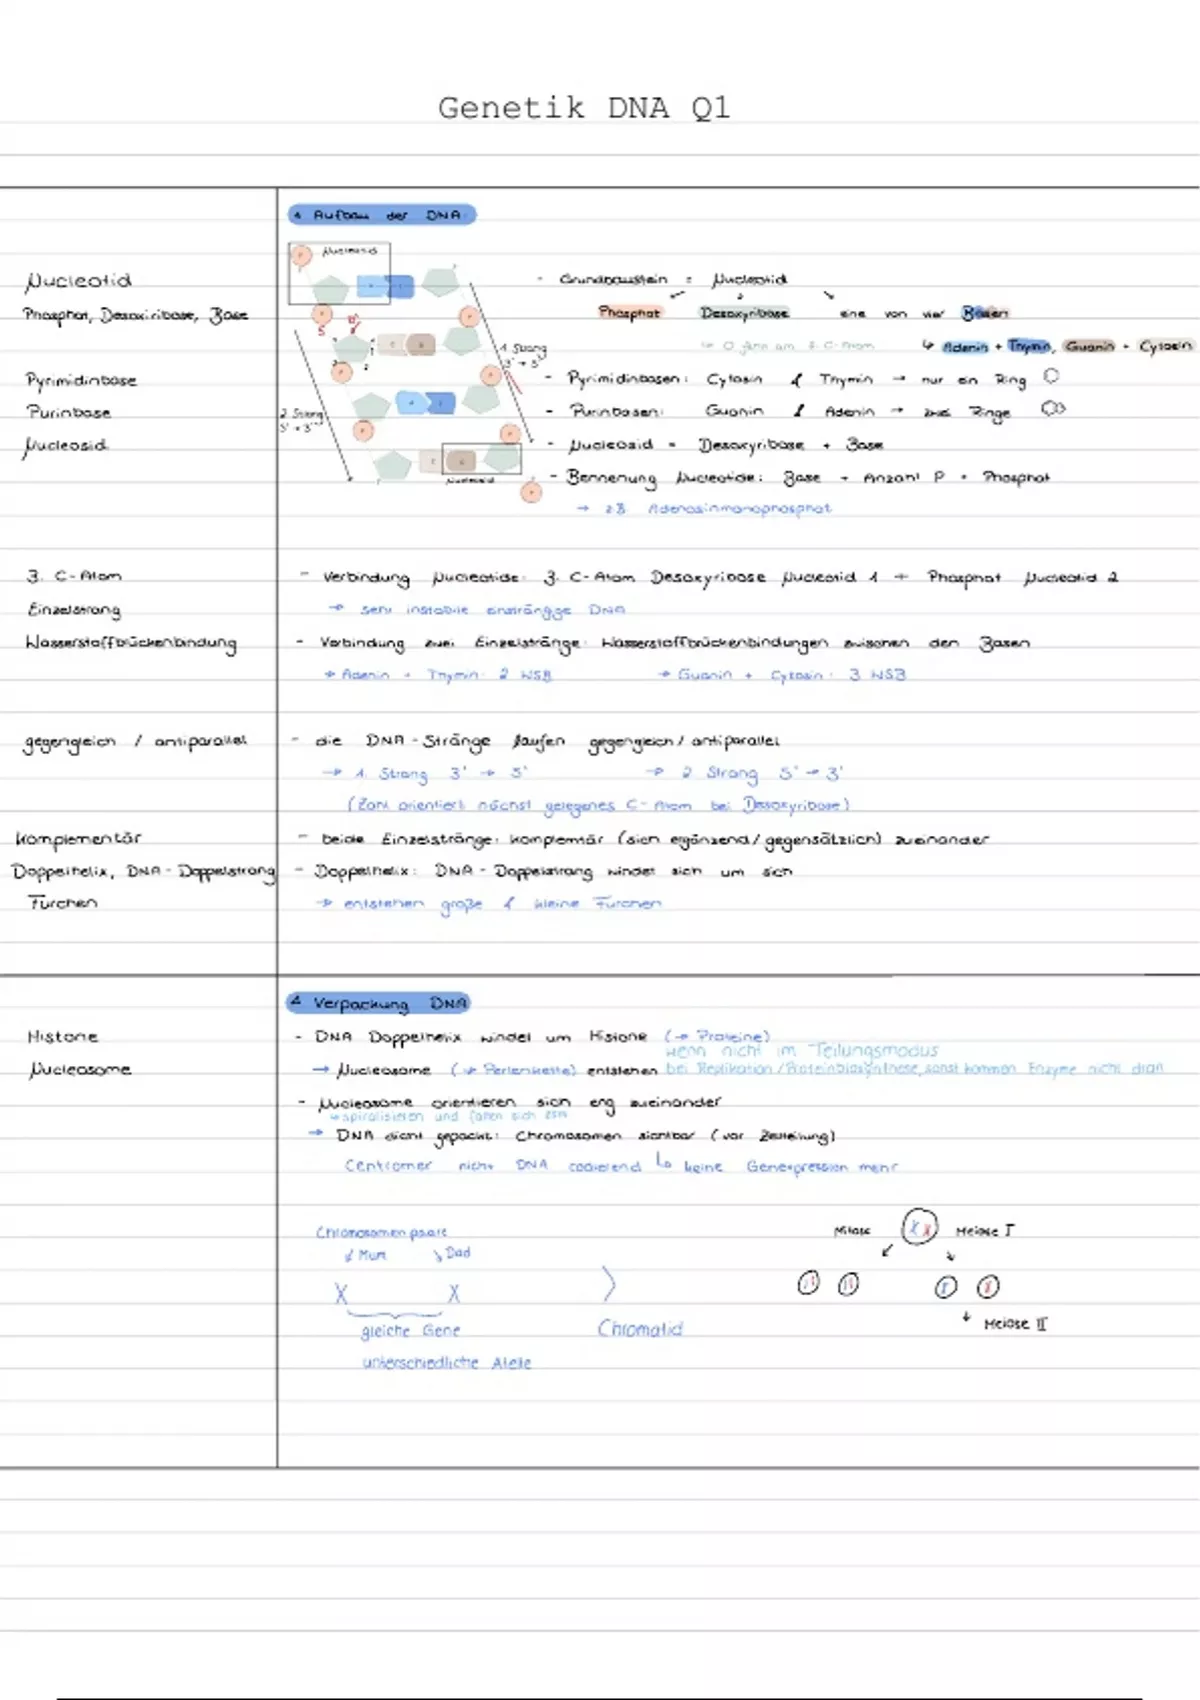 Genetik DNA Q1
1 Aufbau der DNA:
Nucleotid
Nucleotid
- Grundbaustein = Nucleotid
Phosphat, Desoxiribose, Base
Phosphat Desoxyribose eine von vier Basen
↳ O fehlt am 2. C-Atom
↳ Adenin + Thymin, Guanin + Cytosin
1 Strang
3' → 5'
Pyrimidinbase
- Pyrimidinbasen: Cytosin & Thymin → nur ein Ring
Purinbase
2 Strang
5' → 3'
- Purinbasen: Guanin & Adenin → zwei Ringe
Nucleosid
- Nucleosid = Desoxyribose + Base
Nucleosid
- Bennenung Nucleotide: Base + Anzahl P + Phosphat
→ zB Adenosinmonophosphat
3. C-Atom
- Verbindung Nucleotide: 3. C-Atom Desoxyribose Nucleotid 1 + Phosphat Nucleotid 2
Einzelstrang
→ sehr instabile einsträngige DNA
Wasserstoffbrückenbindung
- Verbindung zwei Einzelstränge: Wasserstoffbrückenbindungen zwischen den Basen
→ Adenin + Thymin: 2 WSB → Guanin + Cytosin: 3 WSB
gegengleich / antiparallel
- die DNA-Stränge laufen gegengleich / antiparallel
→ 1. Strang 3' → 5' → 2 Strang 5' → 3'
(Zahl orientiert nächst gelegenes C-Atom bei Desoxyribose)
komplementär
- beide Einzelstränge: komplemtär (sich ergänzend/gegensätzlich) zueinander
Doppelhelix, DNA-Doppelstrang
- Doppelhelix: DNA-Doppelstrang windet sich um sich
Furchen
→ entstehen große & kleine Furchen
2 Verpackung DNA
Histone
- DNA Doppelhelix windet um Histone (→ Proteine)
wenn nicht im Teilungsmodus
Nucleosome
→ Nucleosome (→ Perlenkette) entstehen bei Replikation/Proteinbiosynthese, sonst kommen Enzyme nicht dran
- Nucleosome orientieren sich eng zueinander
↳ spiralisieren und falten sich zsm
→ DNA dicht gepackt: Chromosomen sichtbar (vor Zellteilung)
Centromer nicht DNA codierend ↳ keine Genexpression mehr
Chromosomenpaare
↙ Mum ↘ Dad
X X
gleiche Gene
unterschiedliche Allele
Chromatid
Mitose Meiose I
↓ Meiose II